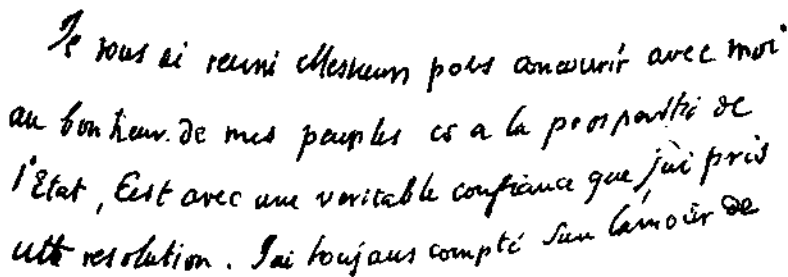 Je vous ai reuni Messieurs pour concourir avec moi
au bonheur de mes peuples et a la prosperité de
l'Etat, C'est avec une veritable confiance que j'ai pris
cette resolution. J'ai toujours compté sur l'amour de